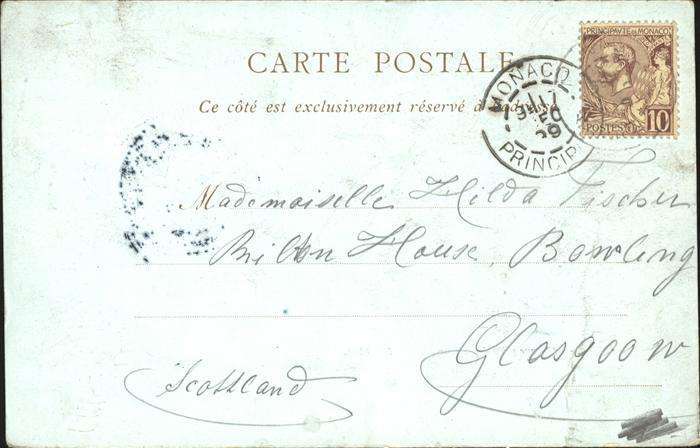 PRINCIPAUTÉ DE MONACO
CARTE POSTALE
POSTES 10
MONACO
PRINCIP
Ce côté est exclusivement réservé à l'adresse
Mademoiselle Hilda Fischer
House, Bowling
Glasgoow
Scottland